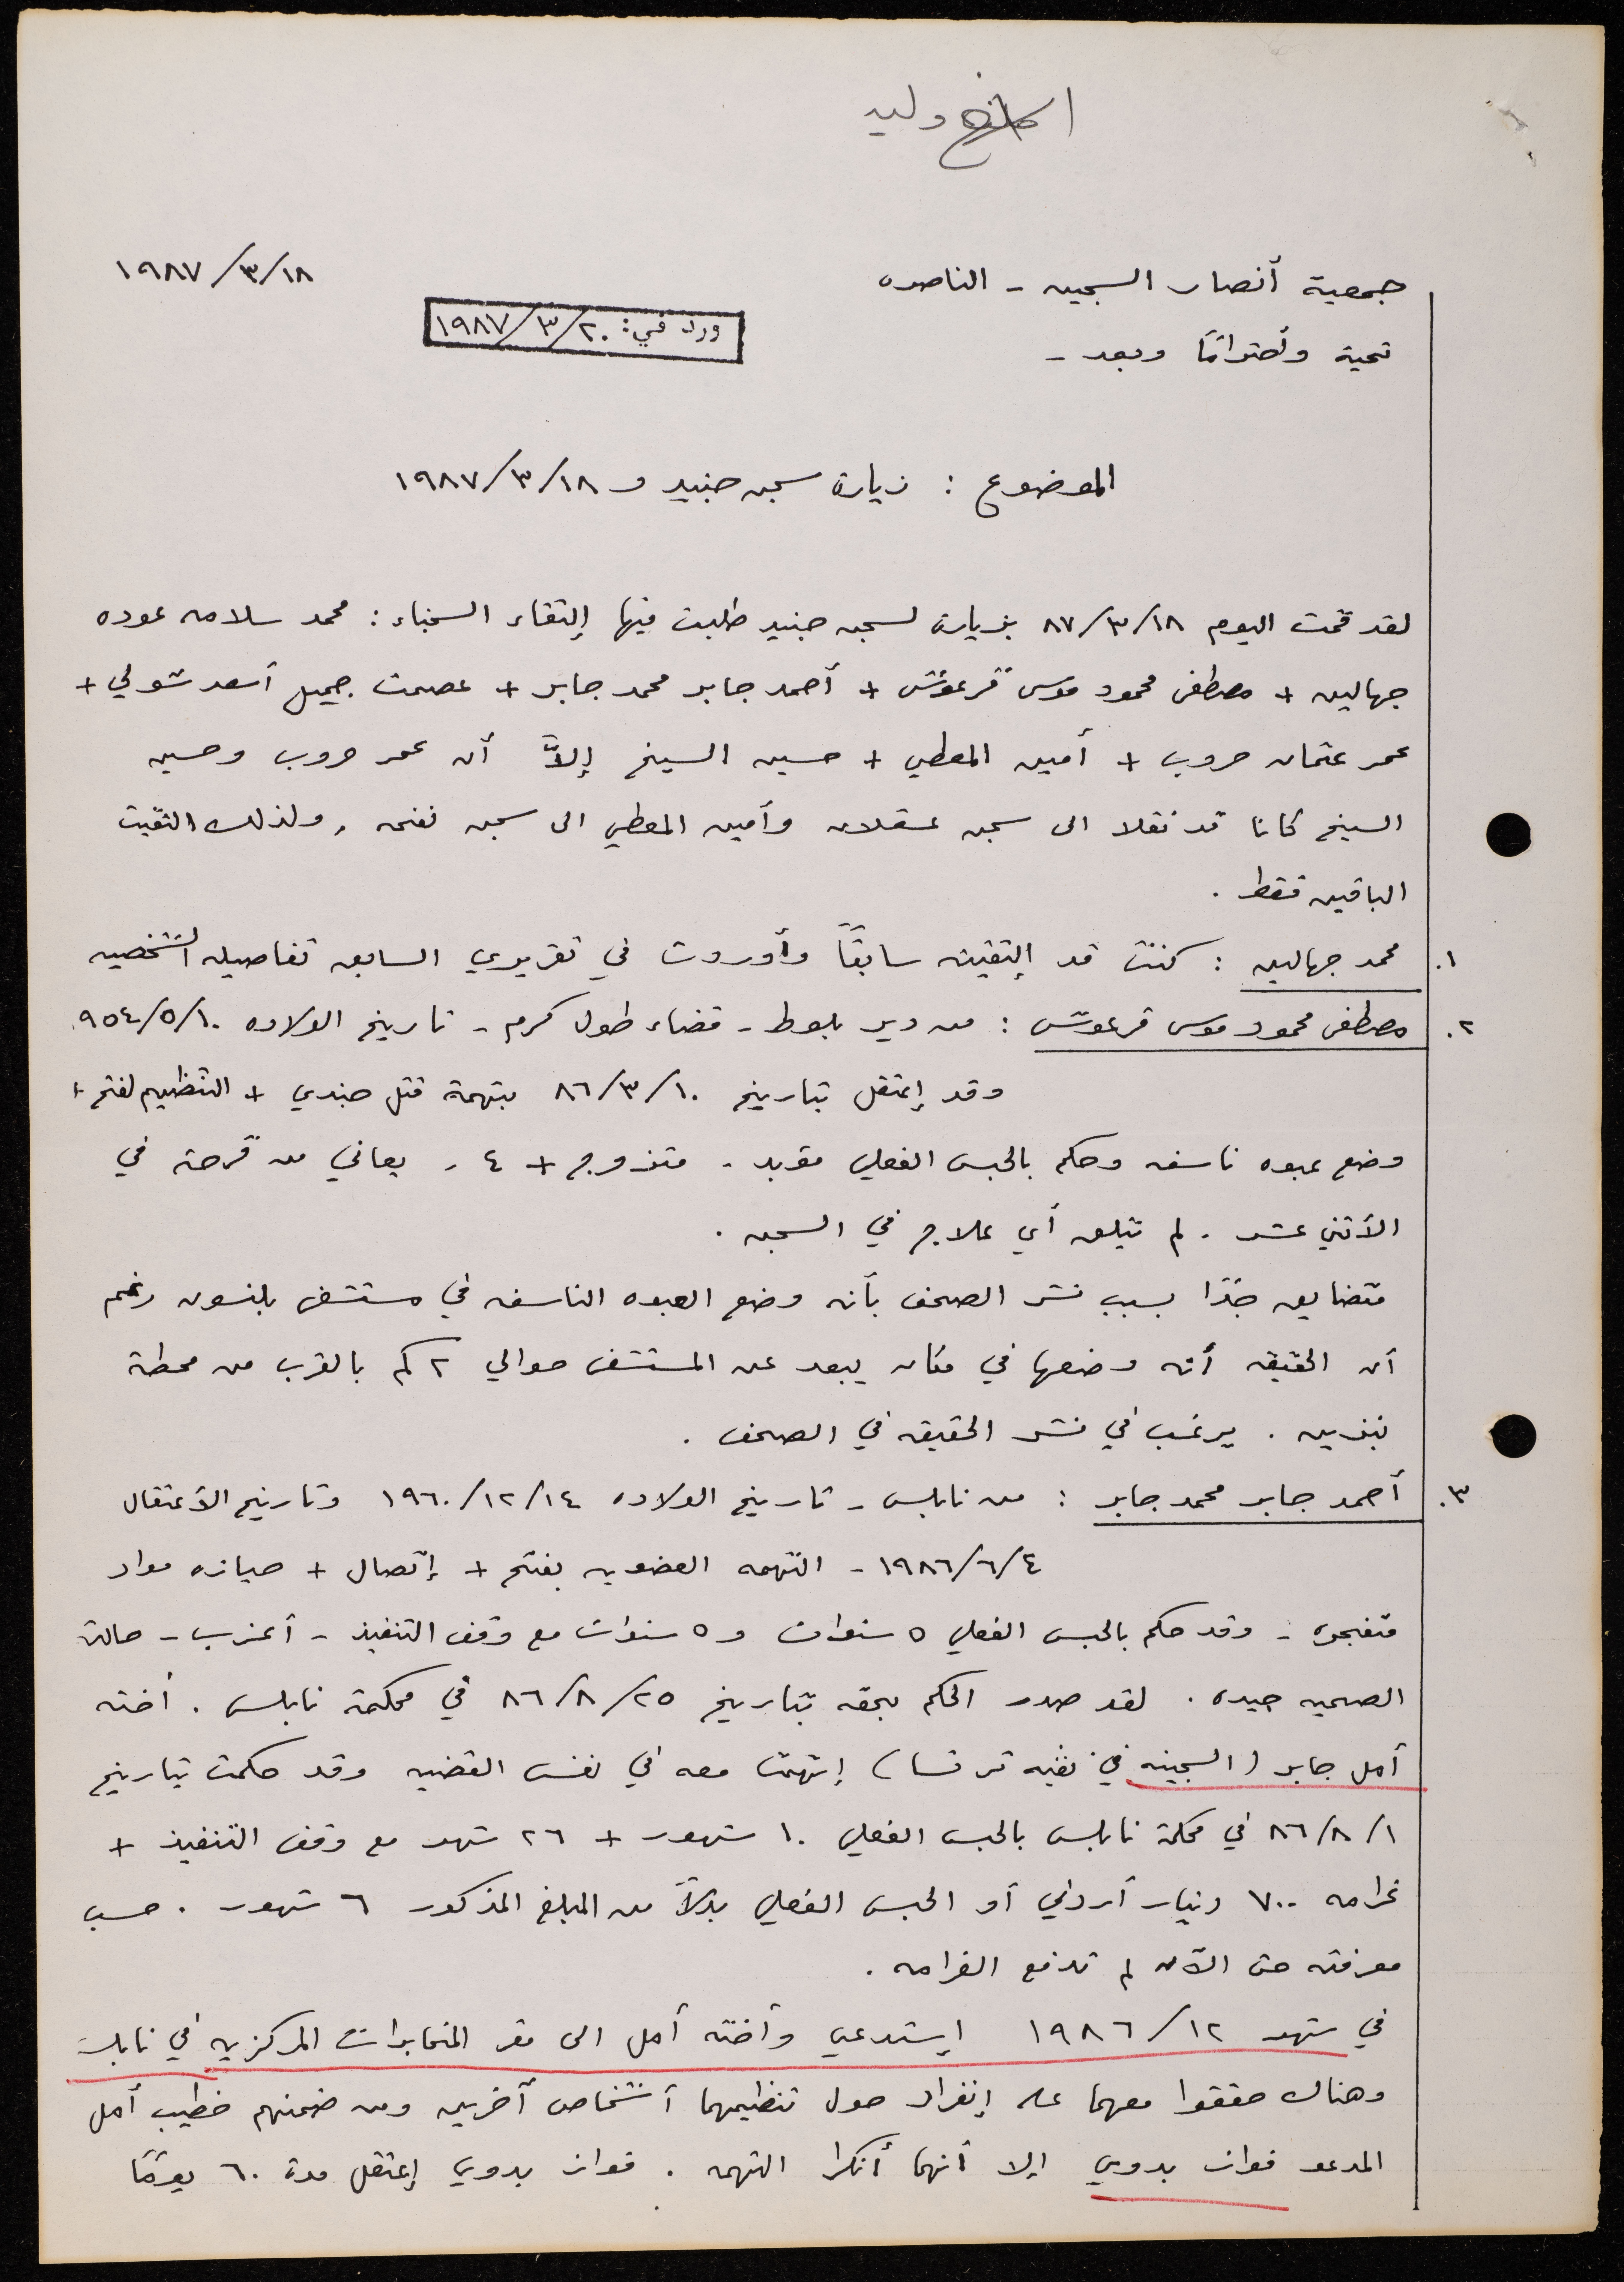 وليد
جمعية أنصار السجين - الناصره
١٩٨٧/٣/١٨
ورد في: ١٩٨٧/٣/٢٠
تحية وأحترامًا وبعد -
الموضوع : زيارة سجن جنيد و ١٩٨٧/٣/١٨
لقد قمت اليوم ٨٧/٣/١٨ بزيارة لسجن جنيد طلبت فيها إلتقاء السجناء : محمد سلامه عوده
جهالين + مصطفى محمود موسى قرعوش + أحمد جابر محمد جابر + عصمت جميل أسعد شولي +
عمر عثمان حروب + أمين المعطي + حسين الشيخ إلاّ أن عمر حروب وحسين
الشيخ كانا قد نقلا الى سجن عسقلان وأمين المعطي الى سجن نفحه , ولذلك التقيت
الباقين فقط .
١. محمد جهالين : كنت قد إلتقيته سابقًا وأوردت في تقريري السابق تفاصيله الشخصيه
٢. مصطفى محمود موسى قرعوش : من دير بلوط - قضاء طول كرم - تاريخ الولاده ٩٥٤/٥/١٠
وقد إعتقل بتاريخ ٨٦/٣/١٠ بتهمة قتل جندي + التنظيم لفتح +
وضع عبوه ناسفه وحكم بالحبس الفعلي مؤبد - متزوج + ٤ - يعاني من قرحة في
الأثني عشر . لم يتلق أي علاج في السجن .
متضايق جدًا بسبب نشر الصحف بأنه وضع العبوه الناسفه في مستشفى بلنسون رغم
أن الحقيقه أنه وضعها في مكان يبعد عن المستشفى حوالي ٢ كم بالقرب من محطة
بنزين . يرغب في نشر الحقيقه في الصحف .
٣. أحمد جابر محمد جابر : من نابلس - تاريخ الولاده ١٩٦٠/١٢/١٤ وتاريخ الأعتقال
١٩٨٦/٦/٤ - التهمه العضويه بفتح + إتصال + حيازه مواد
متفجره - وقد حكم بالحبس الفعلي ٥ سنوات و ٥ سنوات مع وقف التنفيذ - أعزب - حالته
الصحيه جيده . لقد صدر الحكم بحقه بتاريخ ٨٦/٨/٢٥ في محكمة نابلس . أخته
أمل جابر ( السجينه في نفيه ترتسا ) إتهمت معه في نفس القضيه وقد حكمت بتاريخ
٨٦/٨/١ في محكمة نابلس بالحبس الفعلي ١٠ شهور + ٢٦ شهر مع وقف التنفيذ +
غرامه ٧٠٠ دينار أردني أو الحبس الفعلي بدلاً من المبلغ المذكور ٦ شهور . حسب
معرفته حتى الآن لم تدفع الغرامه .
في شهر ١٩٨٦/١٢ إستدعي وأخته أمل الى مقر المخابرات المركزيه في نابلس
وهناك حققوا معهما على إنفراد حول تنظيمهما أشخاص آخرين ومن ضمنهم خطيب أمل
المدعو فواز بدوي إلا أنهما أنكرا التهمه . فواز بدوي إعتقل مدة ٦٠ يومًا